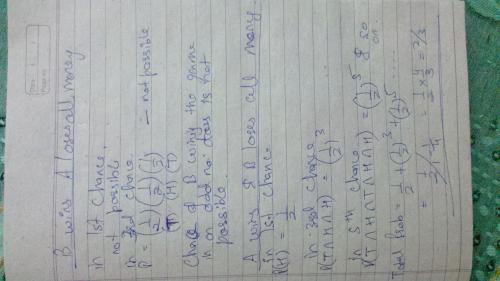 B wins A loses all money
in 1st chance,
not possible
in 3rd chance
P = (1/2) (1/2) (1/2) — not possible
(T) (H) (T)
Chance of B wining the game
in an odd no. toss is not
possible.
A wins & B loses all money.
in 1st chance
P(H) = 1/2
in 3rd chance
P(T∩H∩H) = (1/2)^3
in 5th chance
P(T∩H∩T∩H∩H) = (1/2)^5 & so
on.
Total prob = 1/2 + (1/2)^3 + (1/2)^5 .....
= 1/2 / 1 - 1/4 = 1/2 × 4/3 = 2/3